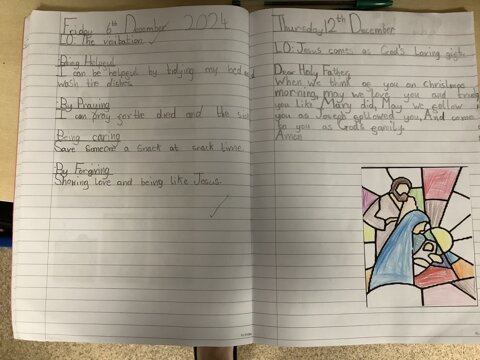 Friday 6th December 2024
LO: The visitation
Being Helpful
I can be helpful by tidying my bed and
wash the dishes.
By Praying
I can pray for the died and the sick
Being caring
Save someone a snack at snack time.
By Forgiving
Showing love and being like Jesus.
Thursday 12th December
LO: Jesus comes as God's loving gift.
Dear Holy Father,
When we think of you on Christmas
morning, may we love you and
you like Mary did, May we follow
you as Joseph followed you, And come
to you as God's family.
Amen